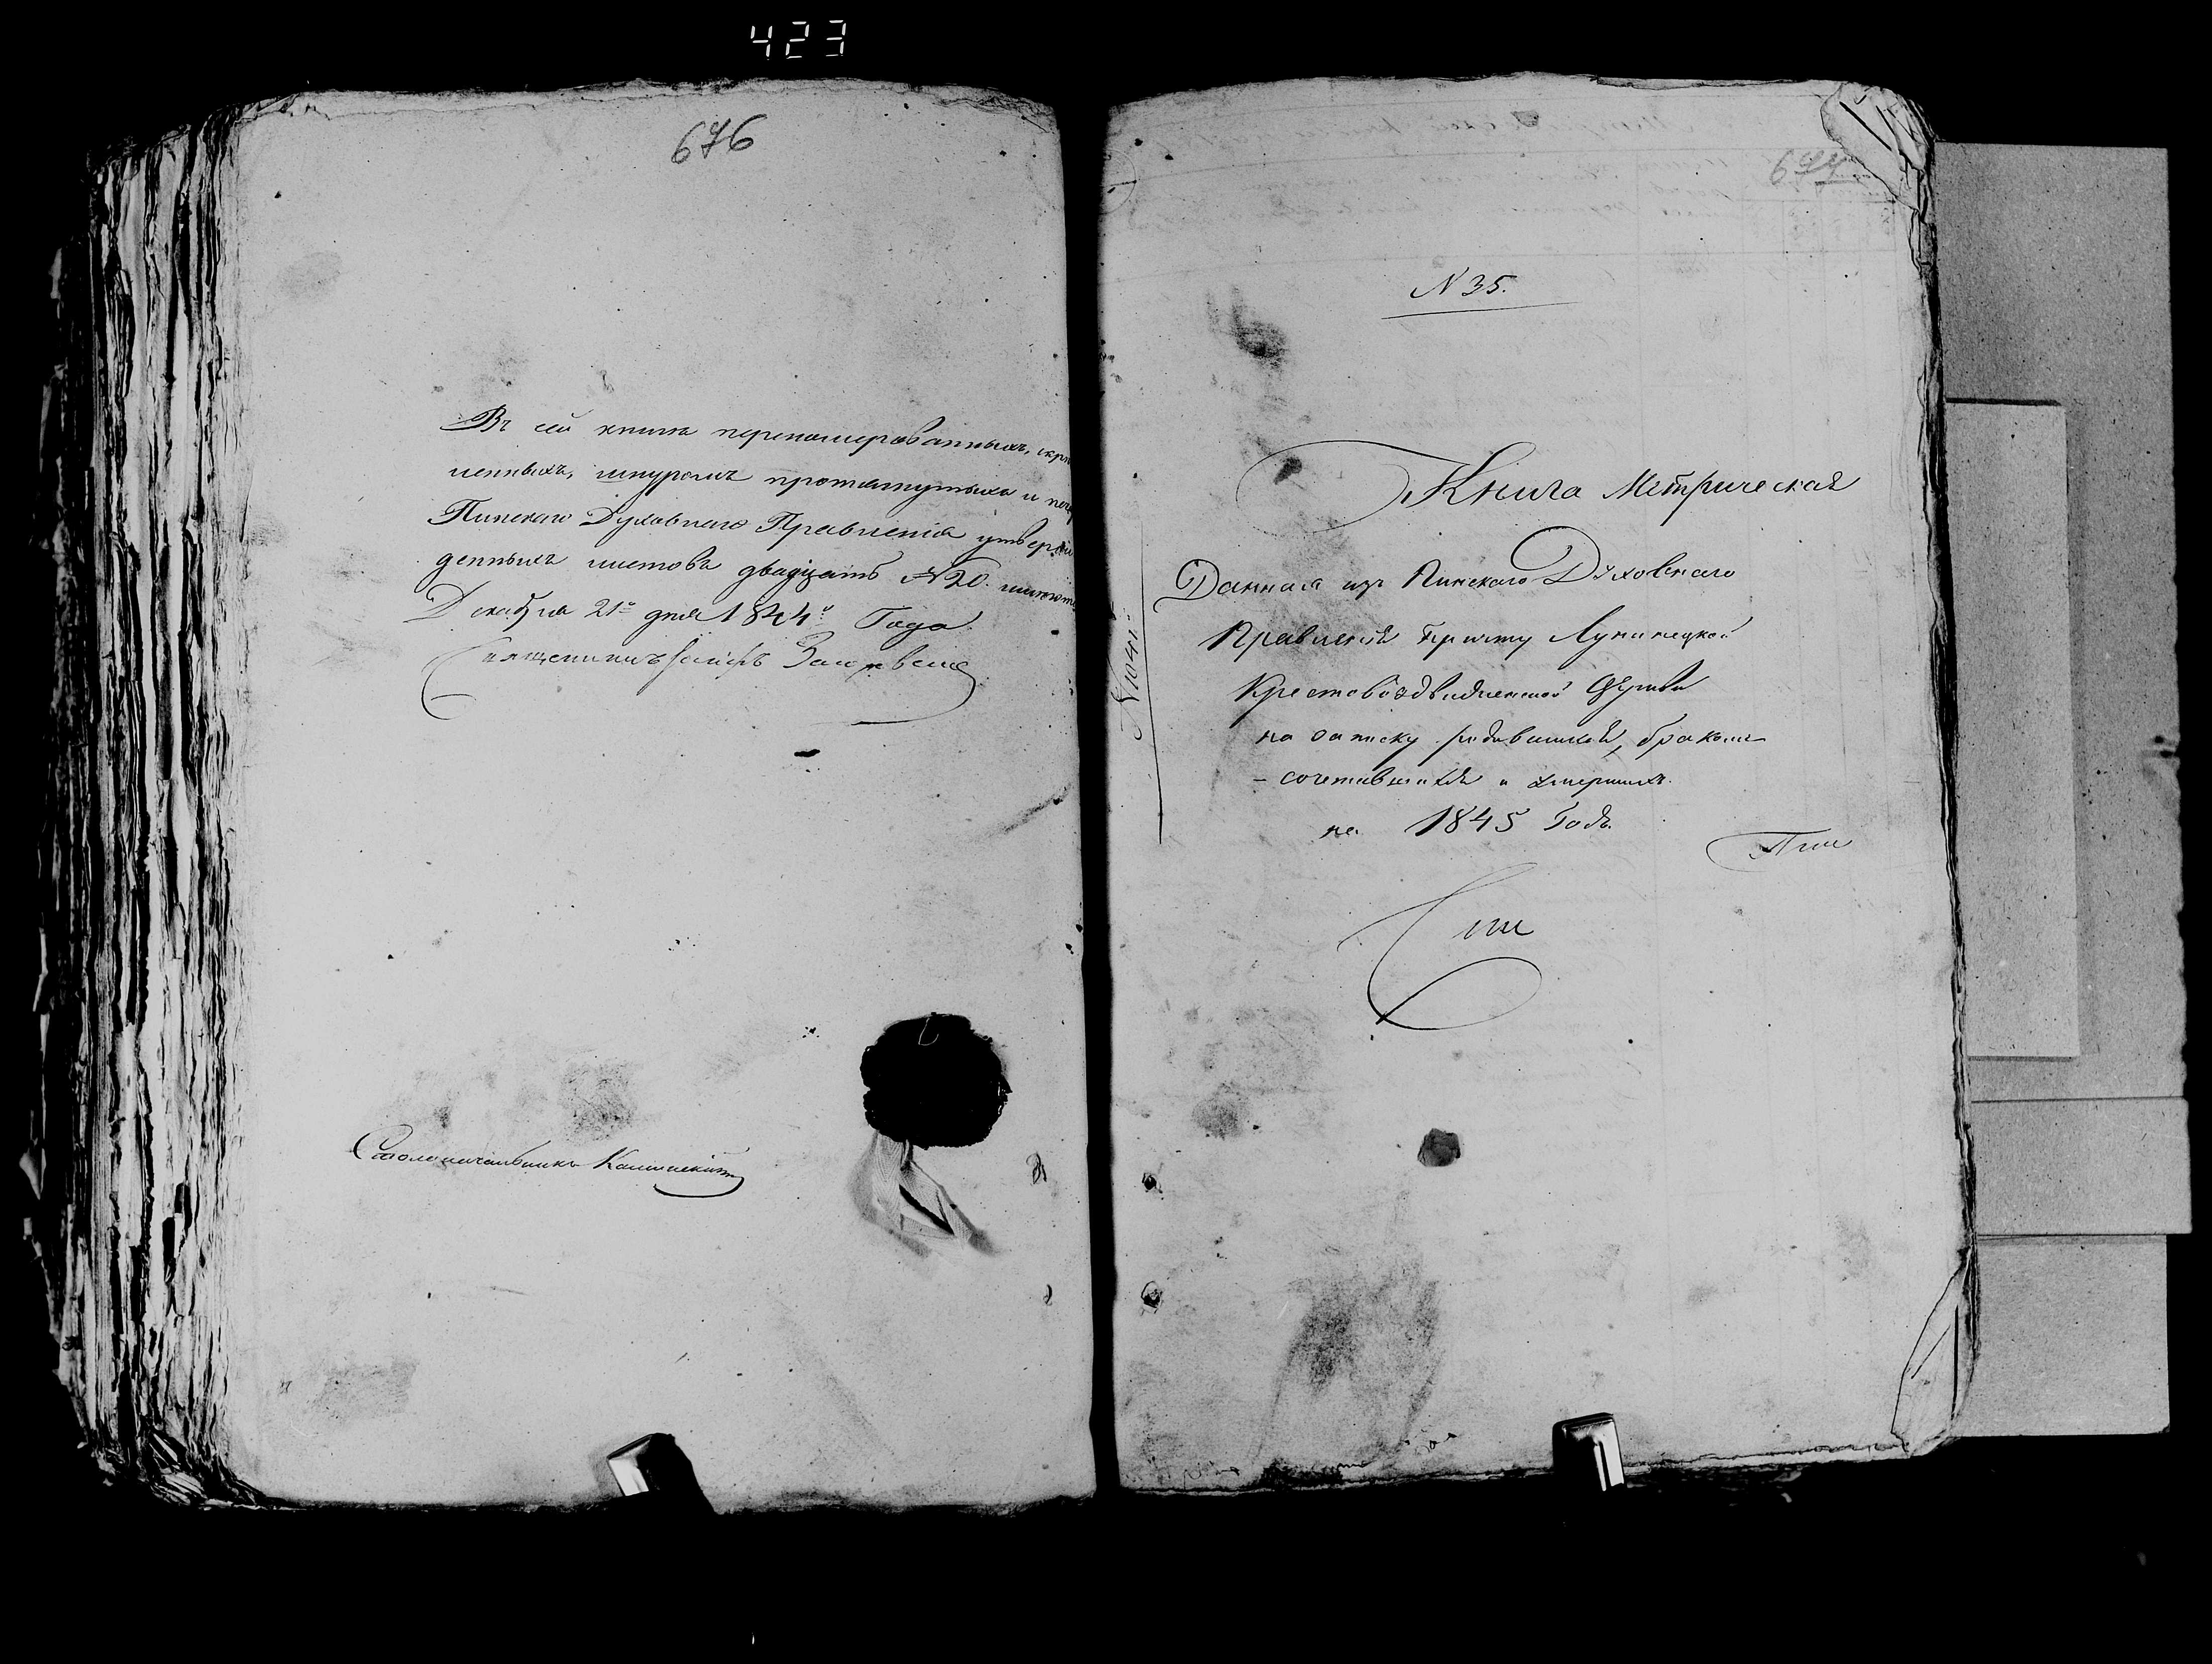 423
676
Въ сей книгѣ перенумерованныхъ, скрѣ
пленныхъ, шнуромъ протянутыхъ и печ
Пинскаго Духовнаго Правленія утверж
денныхъ листовъ двадцать №20.
Декабря 21º дня 1844º Года
Священникъ
Столоначальникъ
677
N 35.
Книга Метрическая
Данная изъ Пинскаго Духовнаго
Правленія Причту Лунинецкой
Крестовоздвиженской Церкви
на записку родившихся, бракомъ
- сочетавшихся и умершихъ.
на 1845 Годъ.